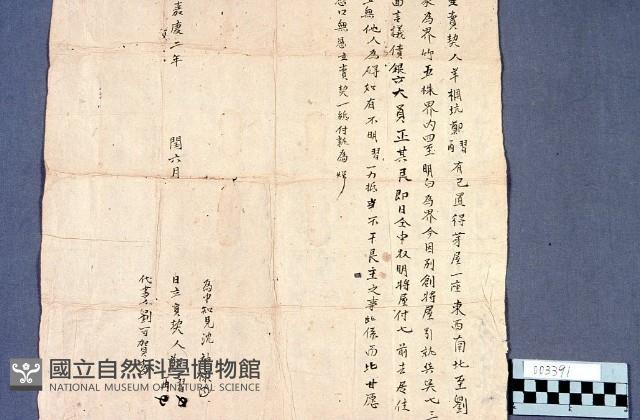 賣契人羊稠坑鄭習 有己置得茅屋一座東西南北至劉
家為界竹五株界內四至明白為界今因別創將屋引就與吳七三
面言議價銀六大員正其艮即日仝中收明將屋付七前去居住
無他人為碍如有不明習一力抵當不干艮主之事此係兩比甘愿
恐口無憑立賣契一紙付執為炤
嘉慶二年 閏六月
為中知見沈
日立賣契人鄭習
代書人劉可賀
國立自然科學博物館
NATIONAL MUSEUM OF NATURAL SCIENCE
003391